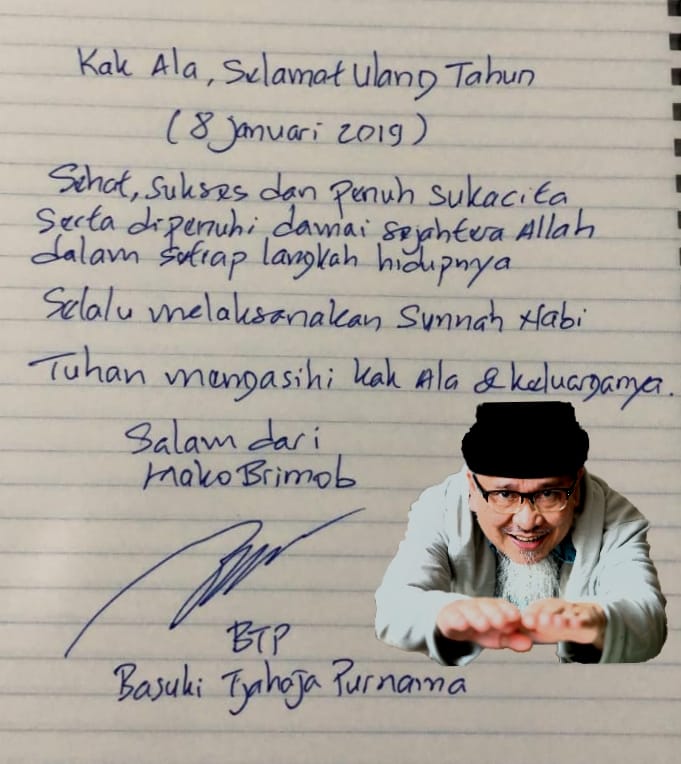 Kak Ala, Selamat Ulang Tahun
(8 Januari 2019)
Sehat, sukses dan penuh sukacita
serta dipenuhi damai sejahtera Allah
dalam setiap langkah hidupnya
Selalu melaksanakan Sunnah Nabi
Tuhan mengasihi kak Ala & keluarganya.
Salam dari
Mako Brimob
BTP
Basuki Tjahaja Purnama